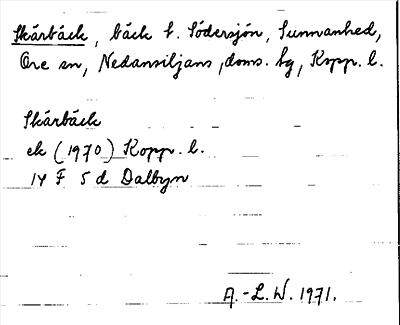 Skärbäck, bäck t. Södersjön, Sunnanhed,
Ore sn, Nedansiljans doms. tg, Kopp. l.
Skärbäck
ek (1970) Kopp. l.
14 F 5 d Dalbyn
A.-L. W. 1971.